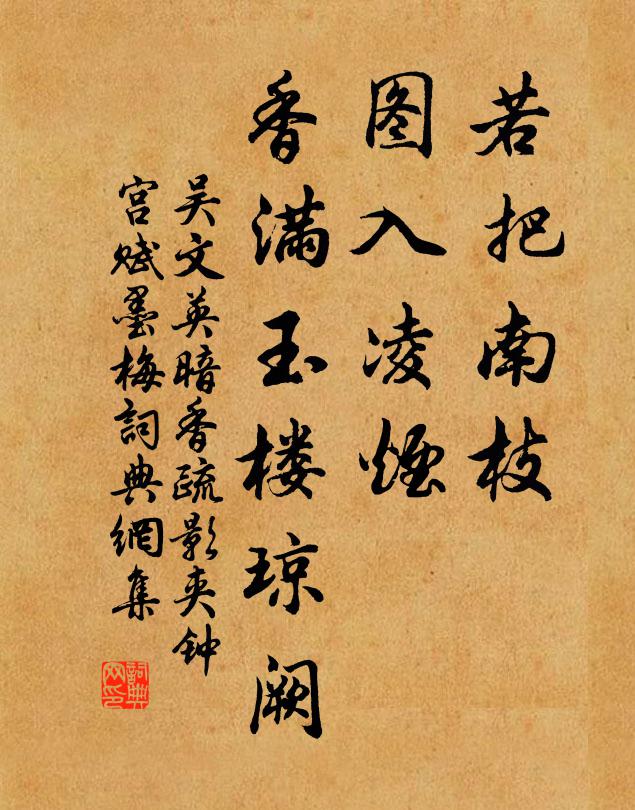 若把南枝
图入凌煙
香满玉楼琼阙
吴文英暗香疏影夹钟
宫赋墨梅詞典網集
詞典网印